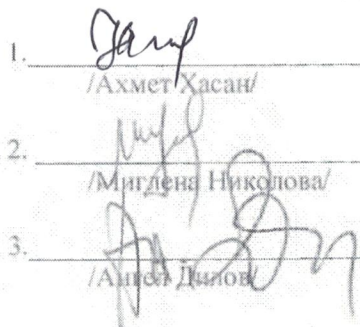 1.
/Ахмет Хасан/
2.
/Миглена Николова/
3.
/Ангел Дилов/